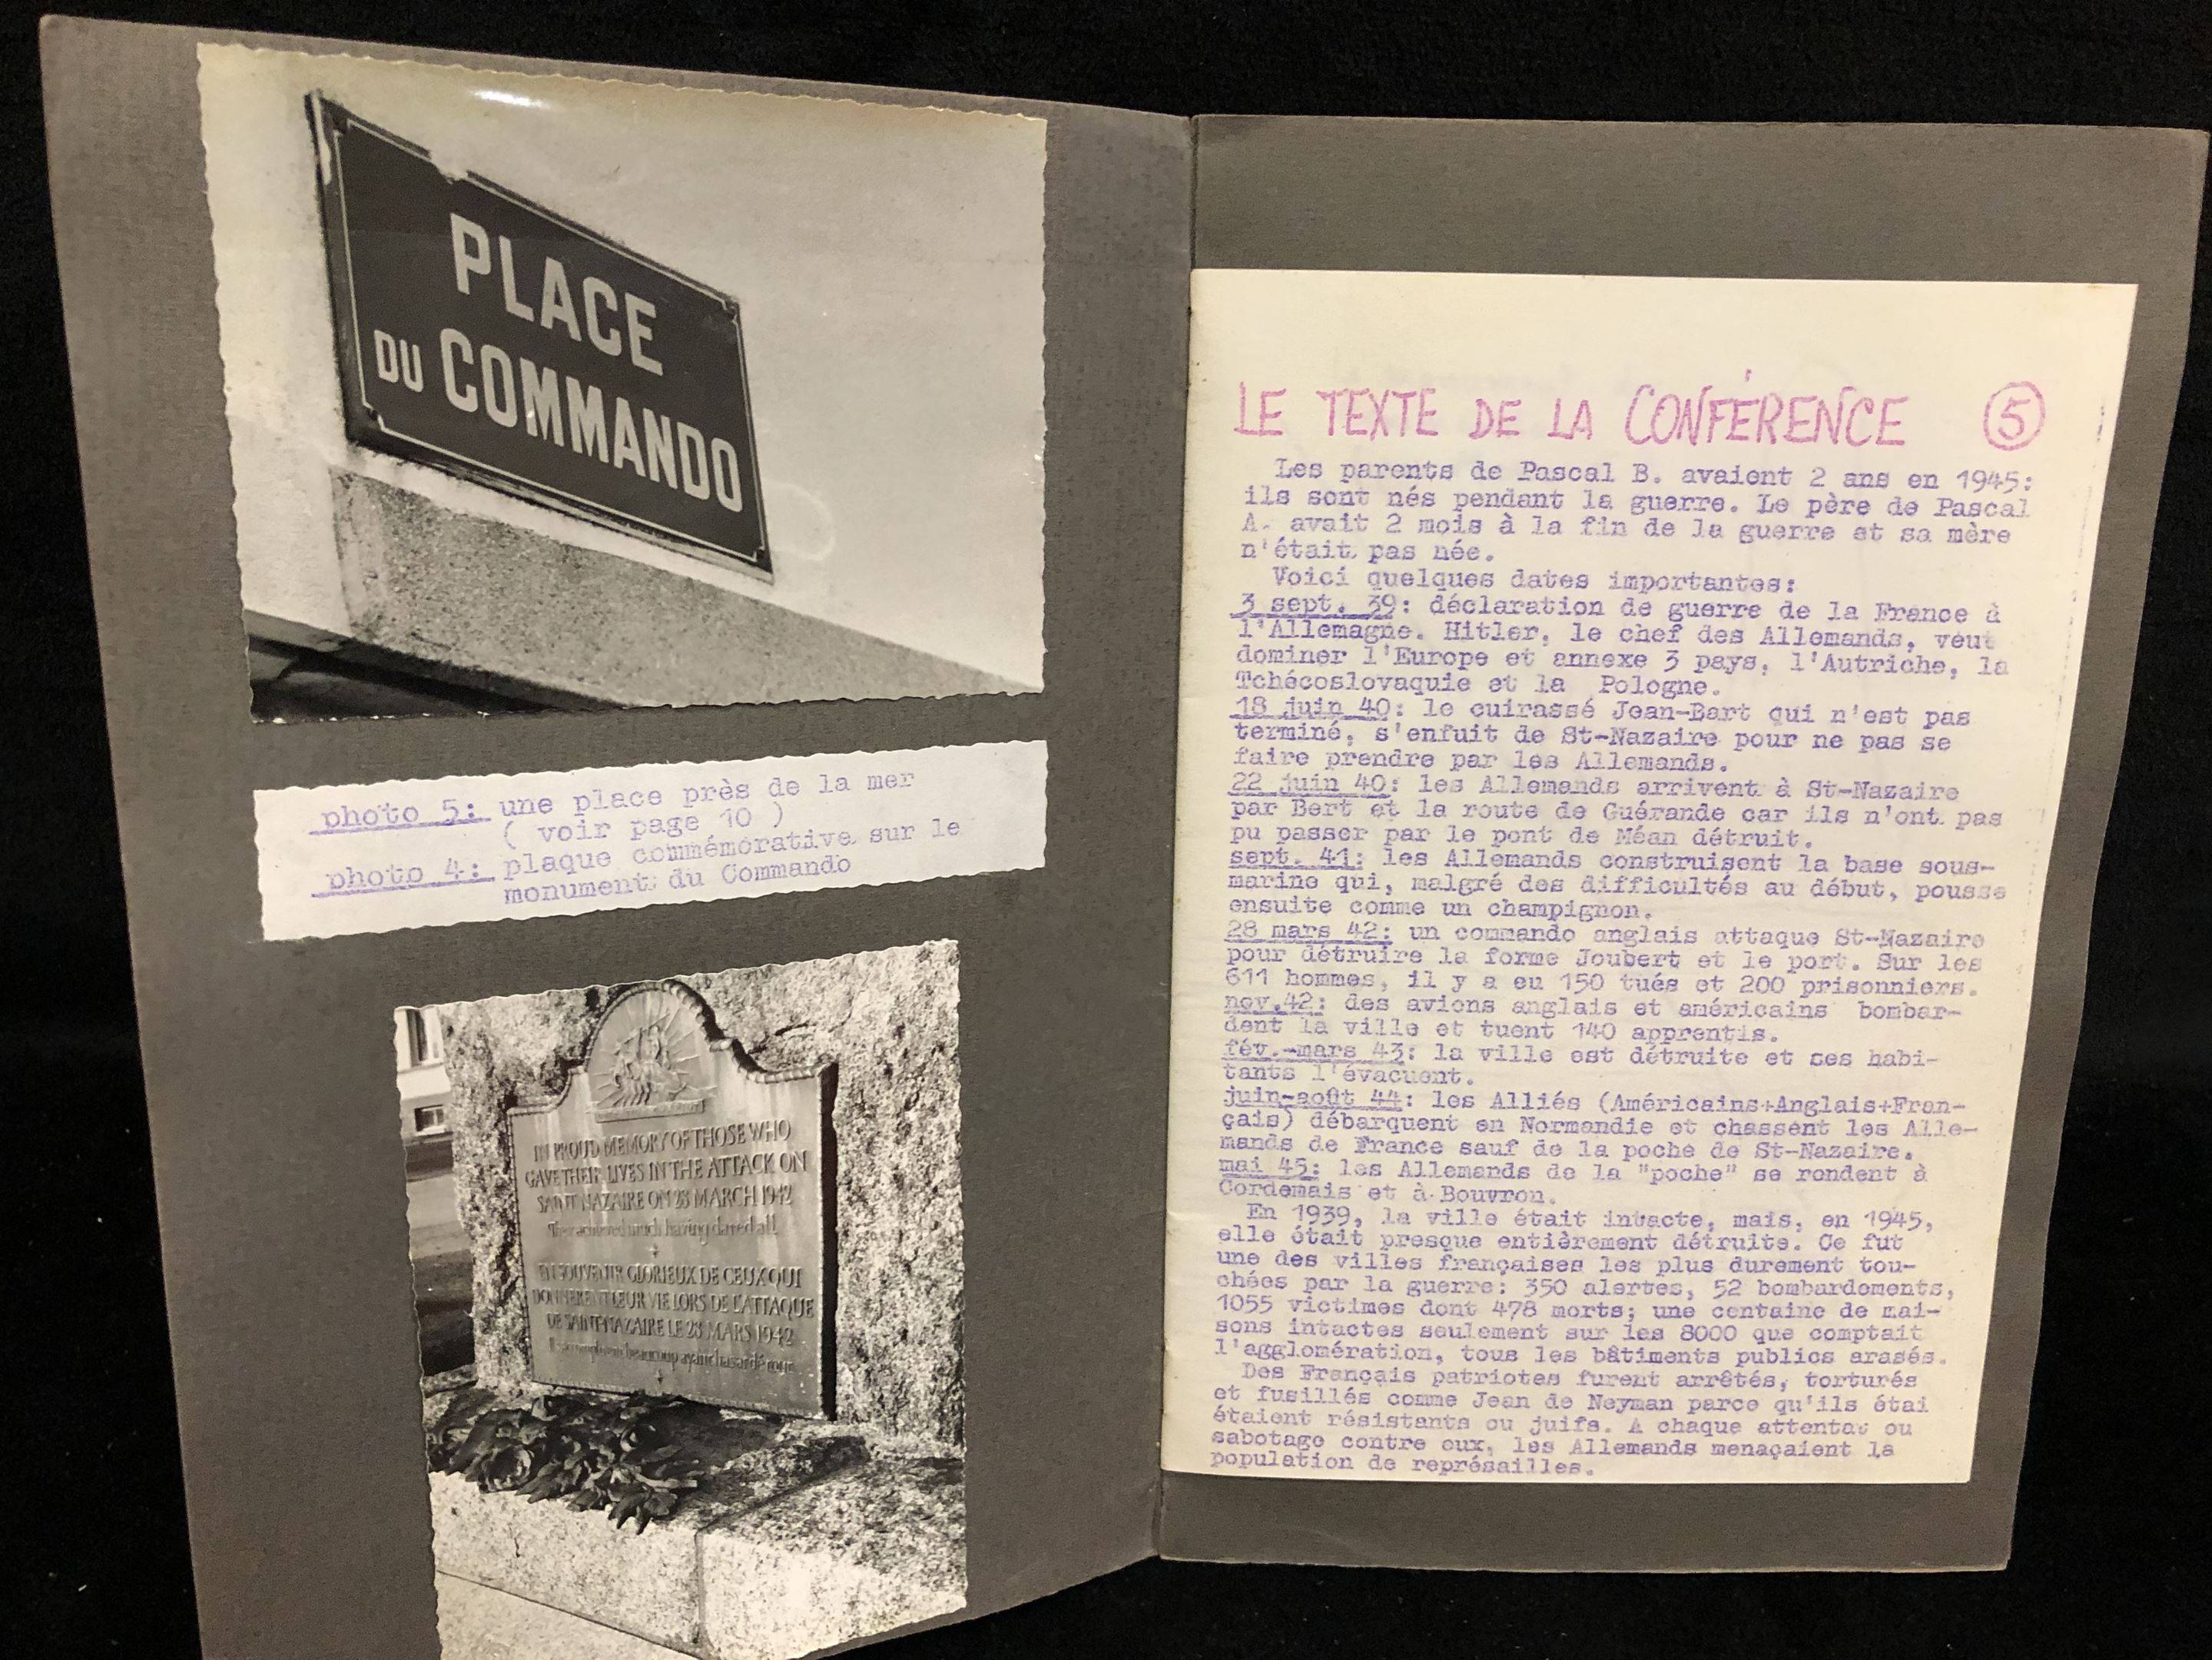 PLACE
DU COMMANDO
photo 5: une place près de la mer
( voir page 10 )
photo 4: plaque commémorative sur le
monument du Commando
IN PROUD MEMORY OF THOSE WHO
GAVE THEIR LIVES IN THE ATTACK ON
SAINT NAZAIRE ON 28 MARCH 1942
They achieved much having dared all
EN SOUVENIR GLORIEUX DE CEUX QUI
DONNERENT LEUR VIE LORS DE L'ATTAQUE
DE SAINT-NAZAIRE LE 28 MARS 1942
beaucoup ayant hasardé
LE TEXTE DE LA CONFÉRENCE 5
Les parents de Pascal B. avaient 2 ans en 1945:
ils sont nés pendant la guerre. Le père de Pascal
A. avait 2 mois à la fin de la guerre et sa mère
n'était pas née.
Voici quelques dates importantes:
3 sept. 39: déclaration de guerre de la France à
l'Allemagne. Hitler, le chef des Allemands, veut
dominer l'Europe et annexe 3 pays, l'Autriche, la
Tchécoslovaquie et la Pologne.
18 juin 40: le cuirassé Jean-Bart qui n'est pas
terminé, s'enfuit de St-Nazaire pour ne pas se
faire prendre par les Allemands.
22 juin 40: les Allemands arrivent à St-Nazaire
par Bert et la route de Guérande car ils n'ont pas
pu passer par le pont de Méan détruit.
sept. 41: les Allemands construisent la base sous-
marine qui, malgré des difficultés au début, pousse
ensuite comme un champignon.
28 mars 42: un commando anglais attaque St-Nazaire
pour détruire la forme Joubert et le port. Sur les
611 hommes, il y a eu 150 tués et 200 prisonniers.
nov.42: des avions anglais et américains bombar-
dent la ville et tuent 140 apprentis.
fév.-mars 43: la ville est détruite et ses habi-
tants l'évacuent.
juin-août 44: les Alliés (Américains+Anglais+Fran-
çais) débarquent en Normandie et chassent les Alle-
mands de France sauf de la poche de St-Nazaire.
mai 45: les Allemands de la "poche" se rendent à
Cordemais et à Bouvron.
En 1939, la ville était intacte, mais, en 1945,
elle était presque entièrement détruite. Ce fut
une des villes françaises les plus durement tou-
chées par la guerre: 350 alertes, 52 bombardements,
1055 victimes dont 478 morts; une centaine de mai-
sons intactes seulement sur les 8000 que comptait
l'agglomération, tous les bâtiments publics arasés.
Des Français patriotes furent arrêtés, torturés
et fusillés comme Jean de Neyman parce qu'ils étai
étaient résistants ou juifs. A chaque attentat ou
sabotage contre eux, les Allemands menaçaient la
population de représailles.